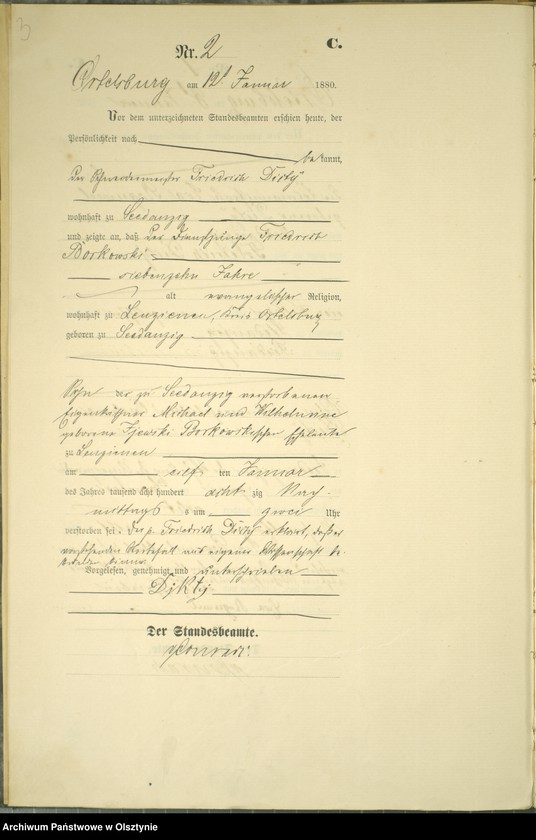 3
C.
Nr. 2
Ortelsburg am 12t Januar 1880.
Vor dem unterzeichneten Standesbeamten erschien heute, der
Persönlichkeit nach
bekannt,
der Schneidermeister Friedrich
wohnhaft zu Seedanzig
und zeigte an, daß der Dienstjunge Friedrich
Borkowski
siebenzehn Jahre
alt evangelischer Religion,
wohnhaft zu Lenzienen, Kreis Ortelsburg
geboren zu Seedanzig
Sohn der zu Seedanzig verstorbenen
Eigenkäthner Michael und Wilhelmine
geborene Borkowskischen Eheleute
zu Lenzienen
am elf ten Januar
des Jahres tausend acht hundert acht zig Nach-
mittags um zwei Uhr
verstorben sei. Friedrich erklärt, daß er
vorstehenden Sterbfall aus eigener Wissenschaft be-
kunde
Vorgelesen, genehmigt und unterschrieben
Der Standesbeamte.
Archiwum Państwowe w Olsztynie